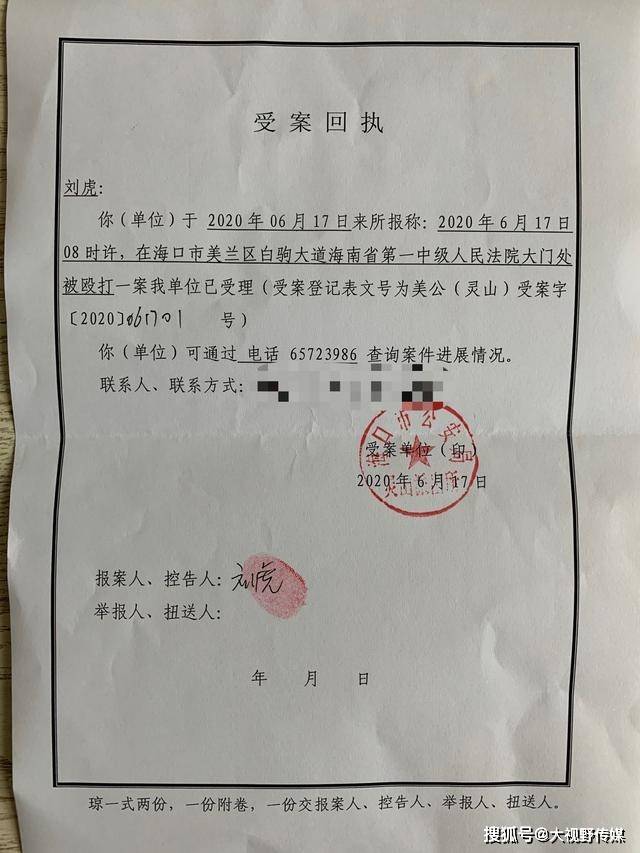 受案回执
刘虎：
你（单位）于 2020年06月17日来所报称：2020年6月17日
08时许，在海口市美兰区白驹大道海南省第一中级人民法院大门处
被殴打一案我单位已受理（受案登记表文号为美公（灵山）受案字
〔2020〕061701 号）
你（单位）可通过 电话 65723986 查询案件进展情况。
联系人、联系方式：
海口市公安局
受案单位（印）
灵山派出所
2020年6月17日
报案人、控告人：刘虎
举报人、扭送人：
年 月 日
琼一式两份，一份附卷，一份交报案人、控告人、举报人、扭送人。
搜狐号@大视野传媒